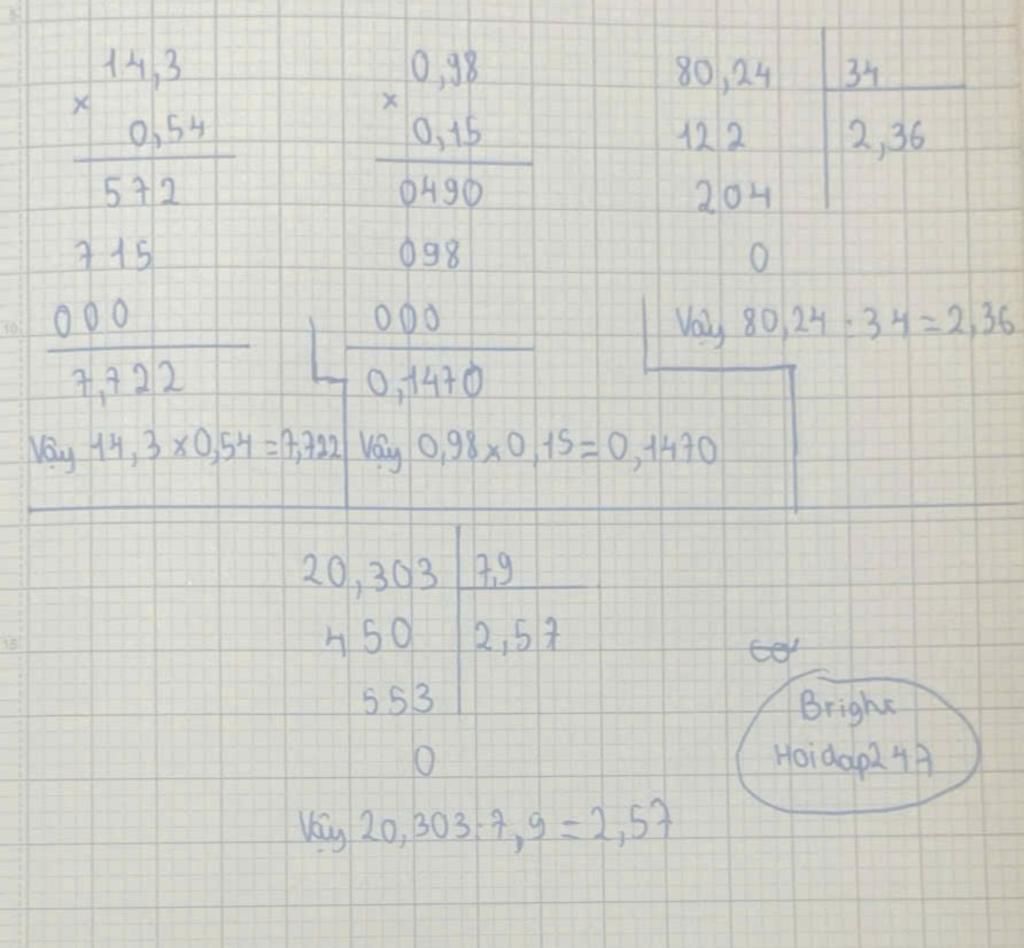 14,3
×
0,54
572
715
000
7,722
Vậy 14,3 × 0,54 = 7,722
0,98
×
0,15
0490
098
000
0,1470
Vậy 0,98 × 0,15 = 0,1470
80,24 34
122 2,36
204
0
Vậy 80,24 : 34 = 2,36
20,303 7,9
450 2,57
553
0
Vậy 20,303 : 7,9 = 2,57
Bright
Hoidap247